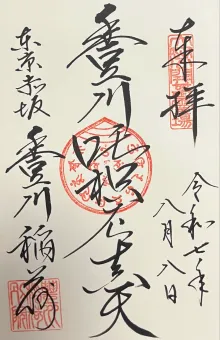 来拝
豊川吒枳尼真天
東京赤坂
豊川稲荷
令和七年
八月八日